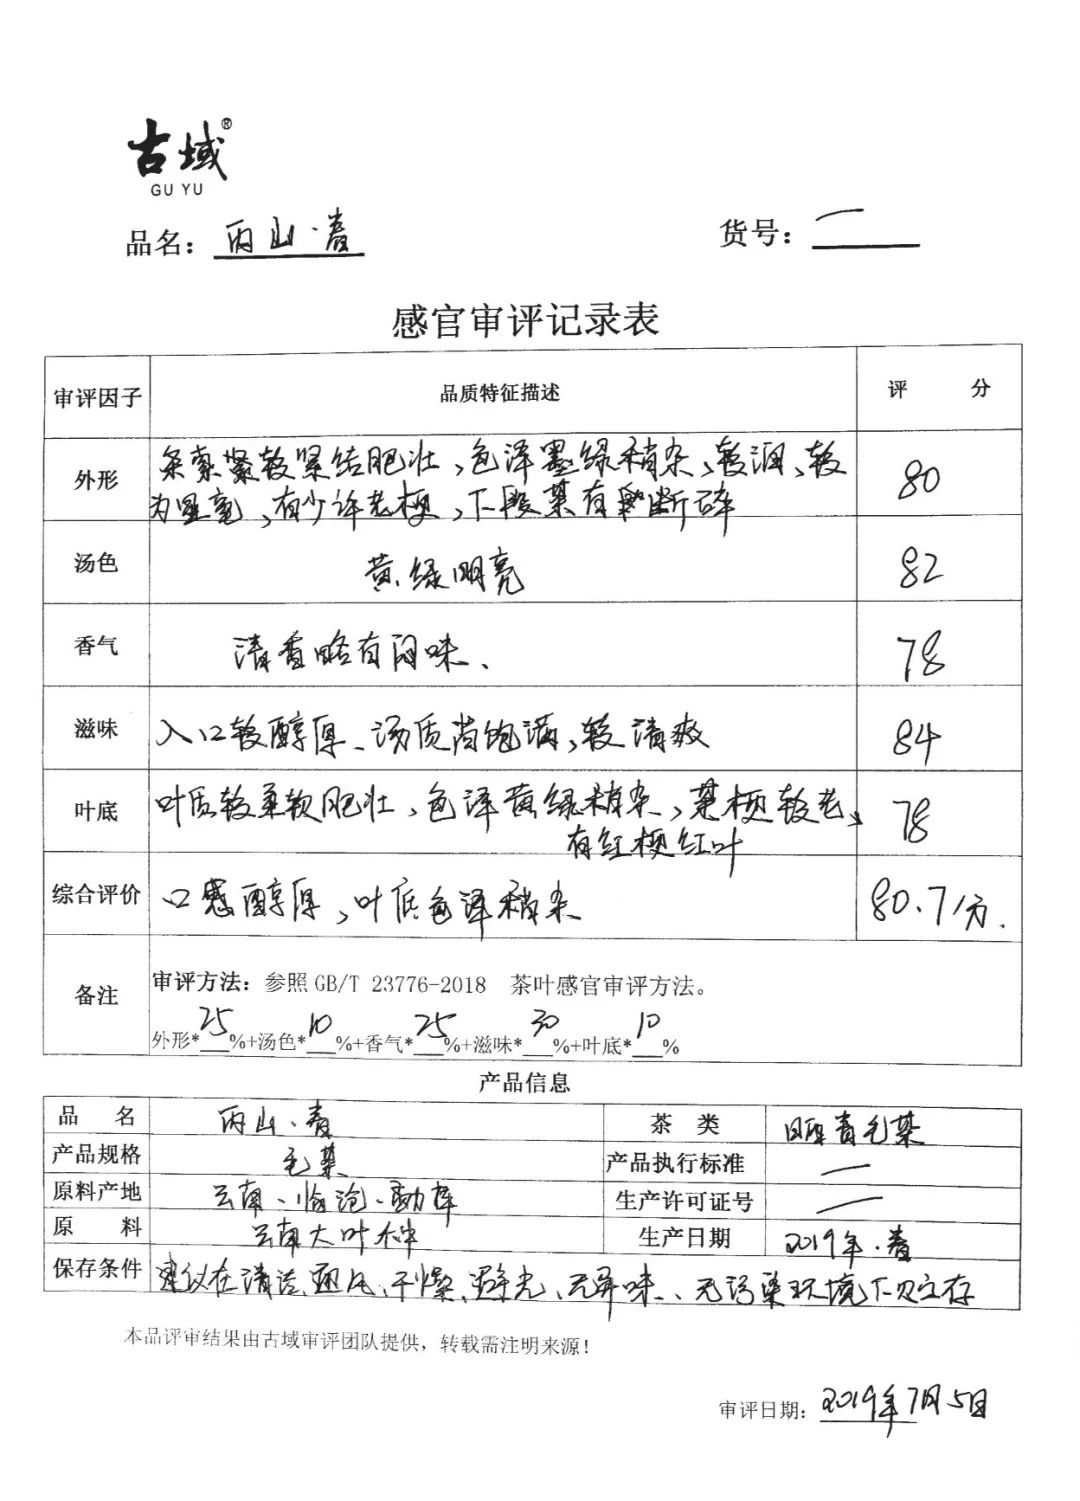 古域®
GU YU
品名：丙山·春 货号：一
感官审评记录表
审评因子 品质特征描述 评 分
外形 条索紧较紧结肥壮、色泽墨绿稍杂、较润、较 80
为显毫、有少许老梗、下段茶有断碎
汤色 黄绿明亮 82
香气 清香略有闷味、 78
滋味 入口较醇厚、汤质尚饱满、较清爽 84
叶底 叶质较柔软肥壮、色泽黄绿稍杂、茶梗较老、 78
有红梗红叶
综合评价 口感醇厚、叶底色泽稍杂 80.7分.
备注 审评方法：参照 GB/T 23776-2018 茶叶感官审评方法。
外形*25%+汤色*10%+香气*25%+滋味*30%+叶底*10%
产品信息
品 名 丙山·春 茶 类 晒青毛茶
产品规格 毛茶 产品执行标准 一
原料产地 云南·临沧·勐库 生产许可证号 一
原 料 云南大叶种 生产日期 2019年·春
保存条件 建议在清洁、通风、干燥、避光、无异味、无污染环境下贮存
本品评审结果由古域审评团队提供，转载需注明来源！
审评日期：2019年7月5日